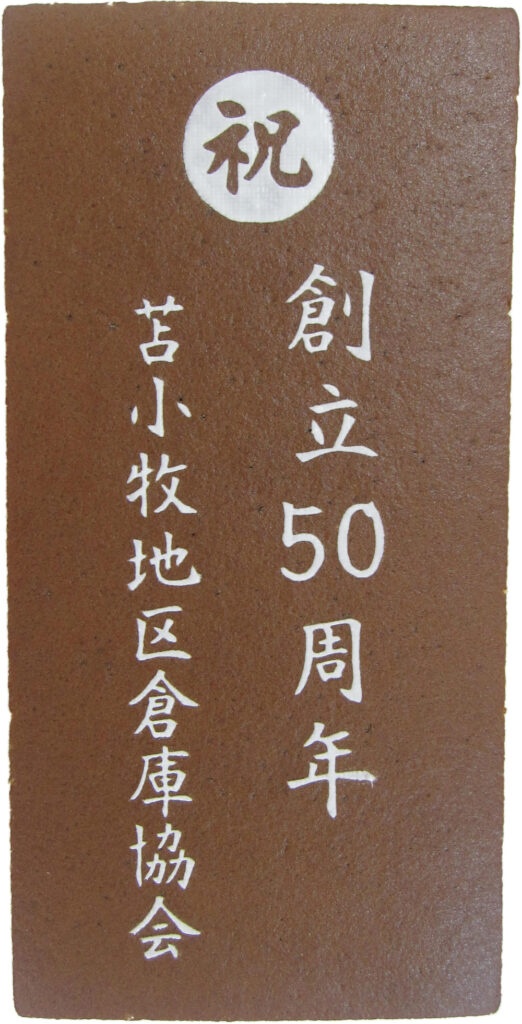 祝
創立50周年
苫小牧地区倉庫協会